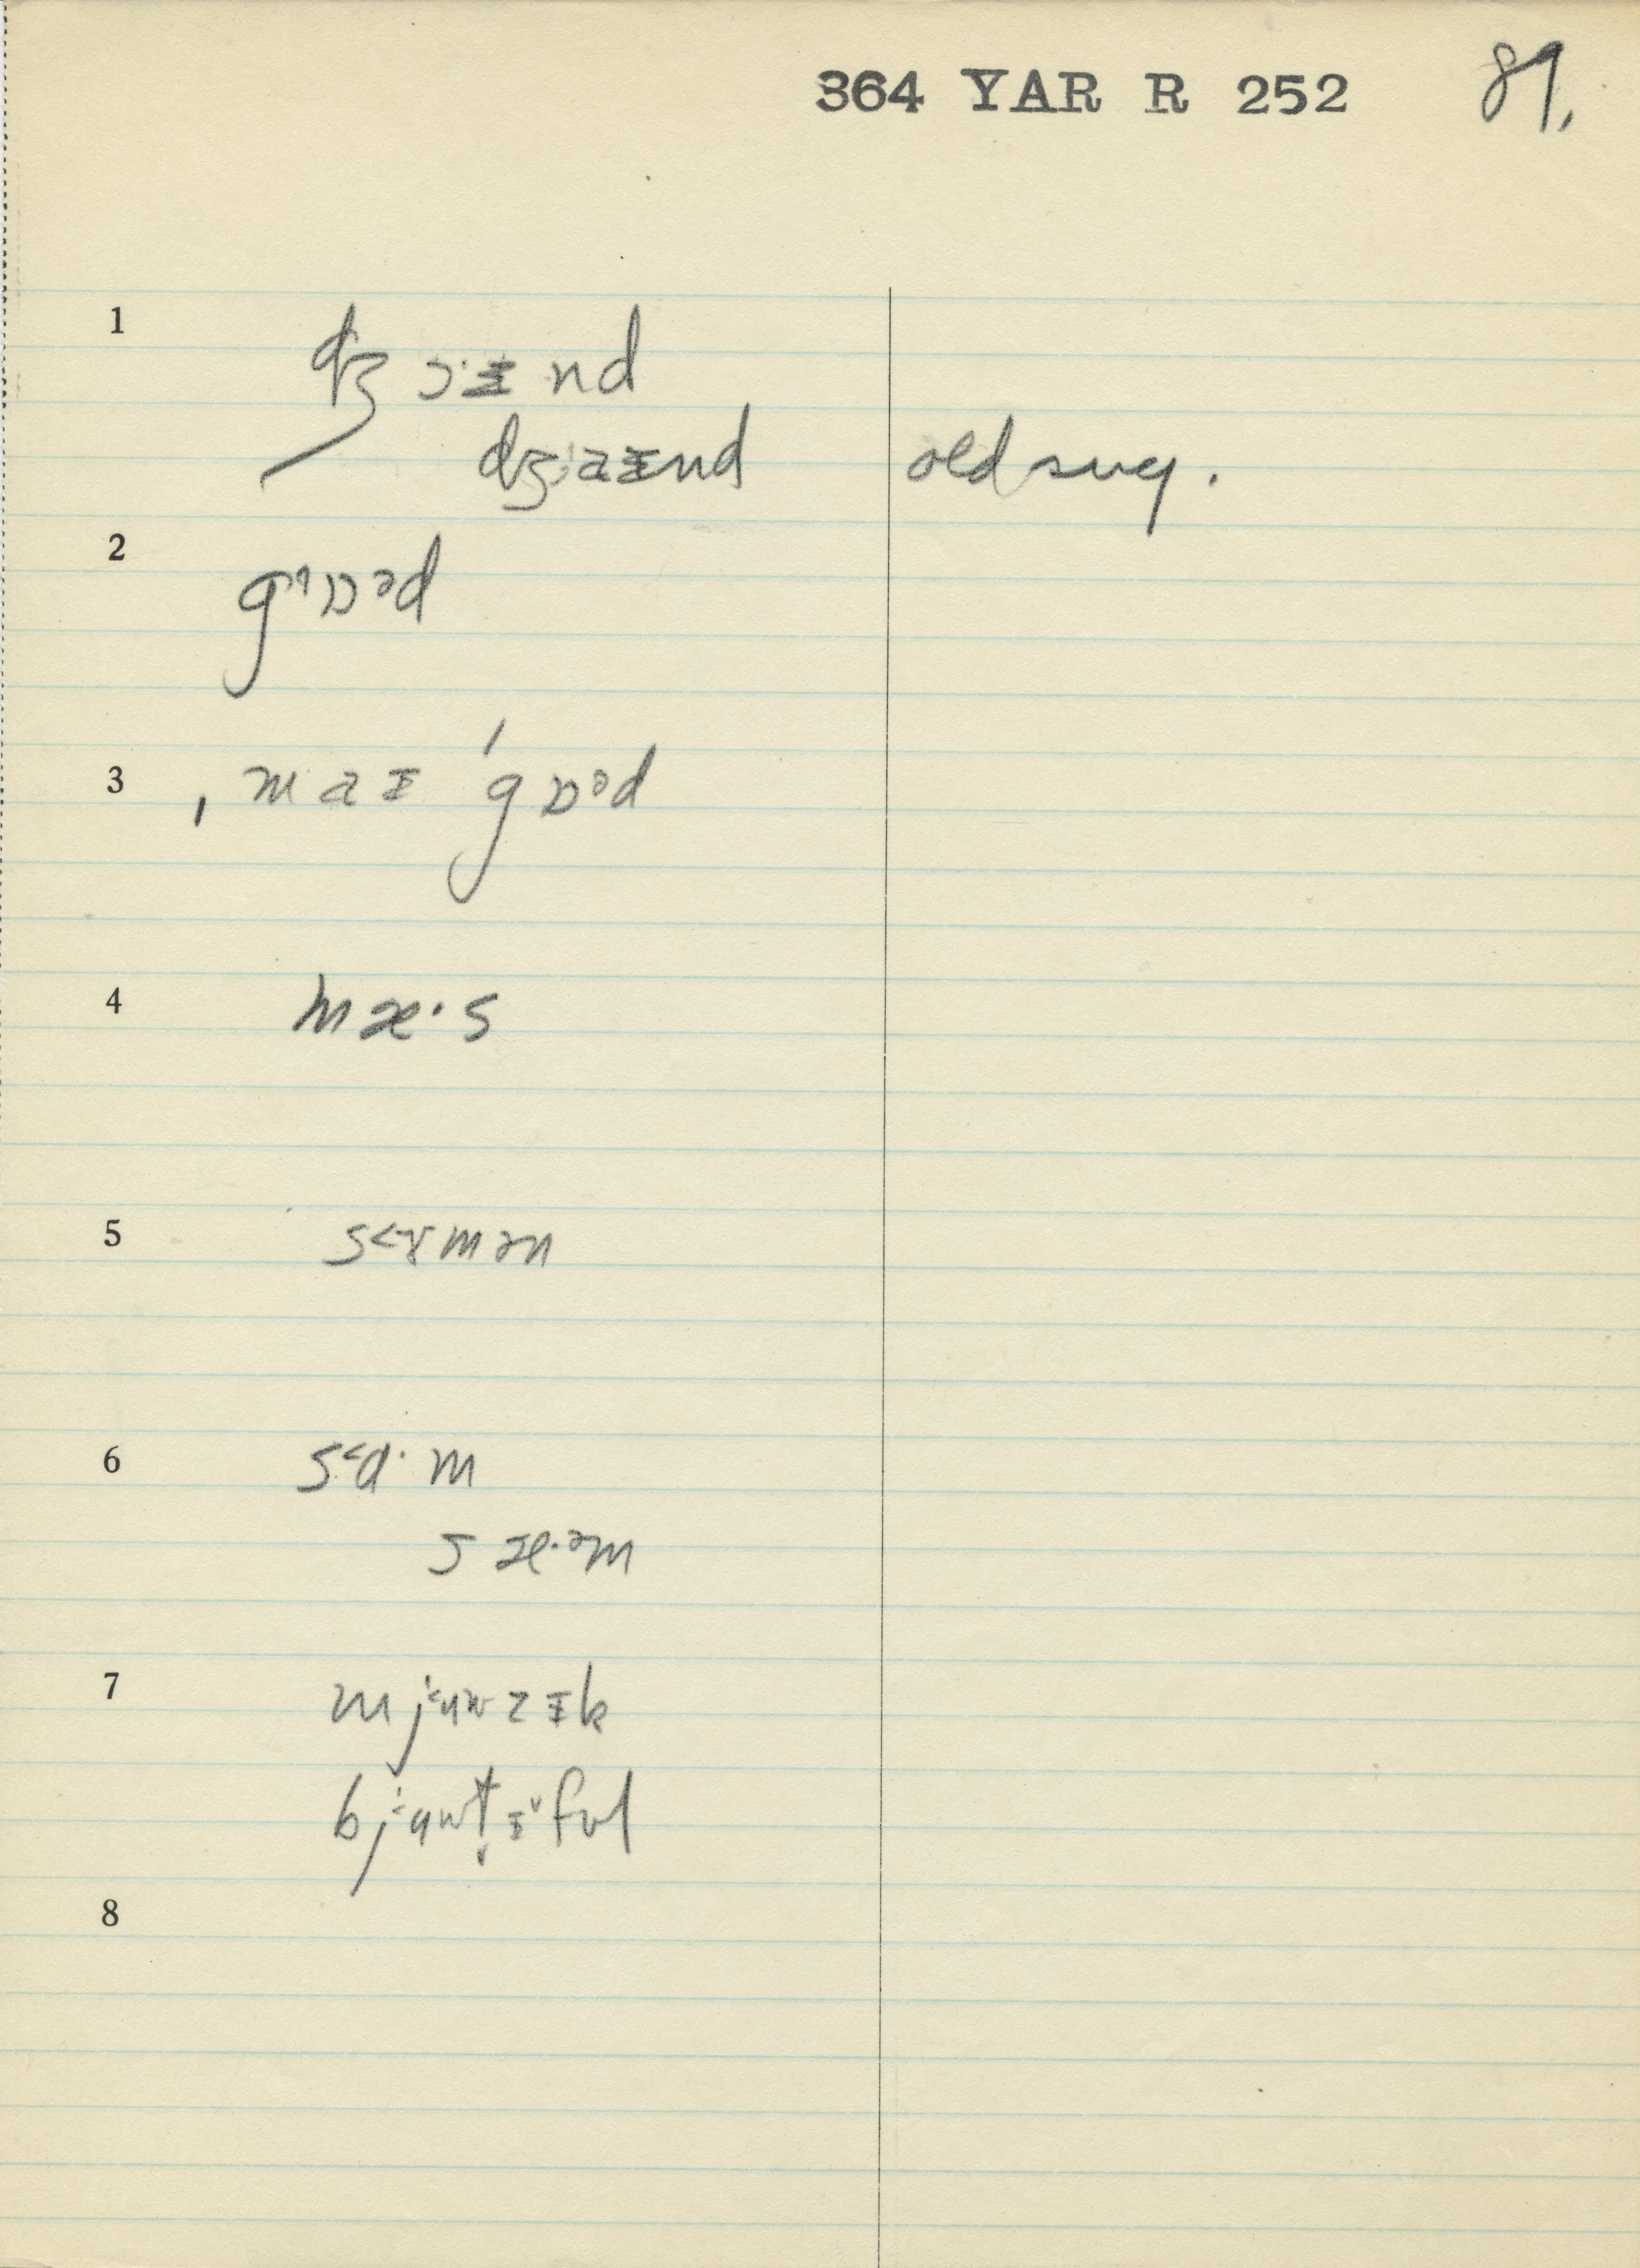 364 YAR R 252 89.
1 dʒɔ·ɪnd
dʒaɪnd old sug.
2 gɒᵊd
3 ˌmaɪ ˈgɒᵊd
4 mæ·s
5 s<ɤmən
6 s<ɑ·m
sæ·ᵊm
7 mjʉwzɪk
bjʉwt̬ɪ˅fʊl
8